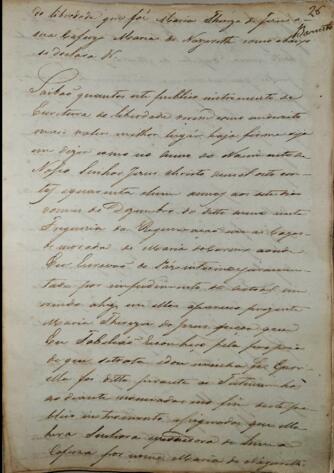 de liberdade que fás Maria Thereza de Jesus a
sua Cafuza Maria de Nazareth como abaixo
se declara &
Saibão quantos este publico instrumento de
Escritura de liberdade virem como em direito
mais valer melhor lugar haja forma seja
em dizer como no anno do Nascimento de
Nosso Senhor Jesus Christo de mil oito cen
tos quarenta e hum annos aos sete dias
do mes de Dezembro do dito anno nesta
Freguezia da em Cazas
de morada de Maria aonde
Eu Escrivão de Páz interino juramen
tado por impedimento do actual
vindo ahy em ella apareceo prezente
Maria Thereza de Jesus pessoa que
Eu Tabelião reconheço pela propria
de que se trata e dou minha fé E por
ella foi dito perante as Testemunhas
ao diante nomeadas no fim deste pu
blico instrumento asignadas que ella
hera Senhora e pessuidora de huma
Cafuza por nome Maria de Nazareth
26
Barretto